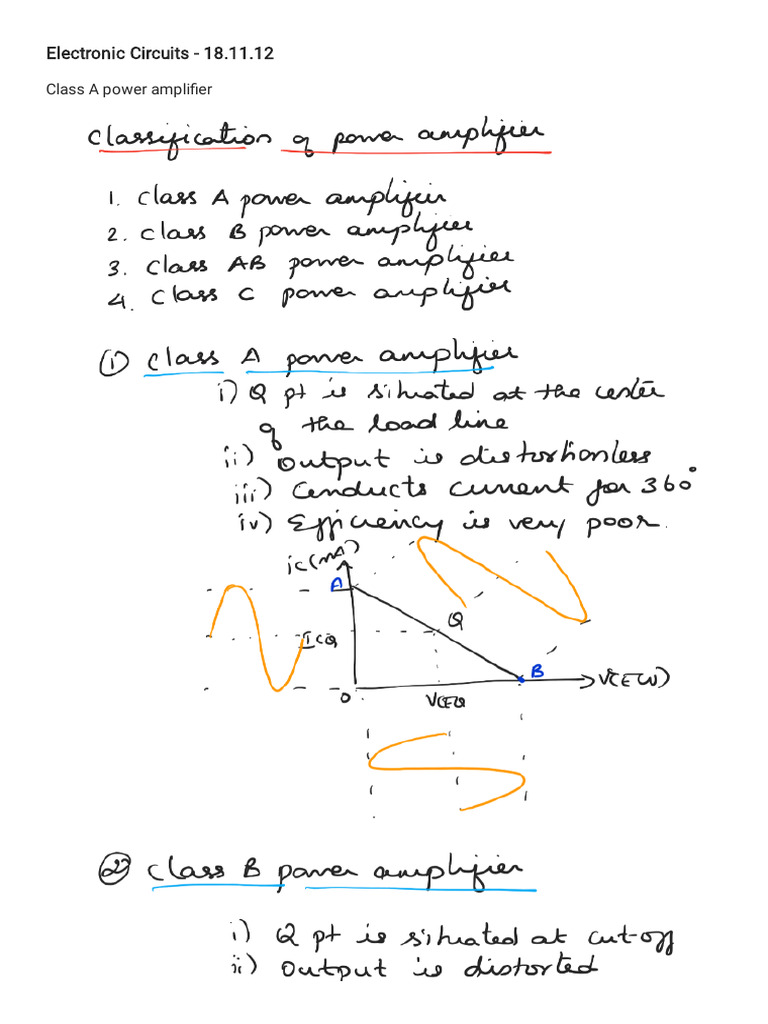 Electronic Circuits - 18.11.12
Class A power amplifier
Classification of power amplifier
1. Class A power amplifier
2. Class B power amplifier
3. Class AB power amplifier
4. Class C power amplifier
① Class A power amplifier
i) Q pt is situated at the center
of the load line
ii) Output is distortionless
iii) Conducts current for 360°
iv) Efficiency is very poor.
ic(mA)
A
Q
ICQ
B
VCE(V)
0
VCEQ
② Class B power amplifier
i) Q pt is situated at cut-off
ii) Output is distorted